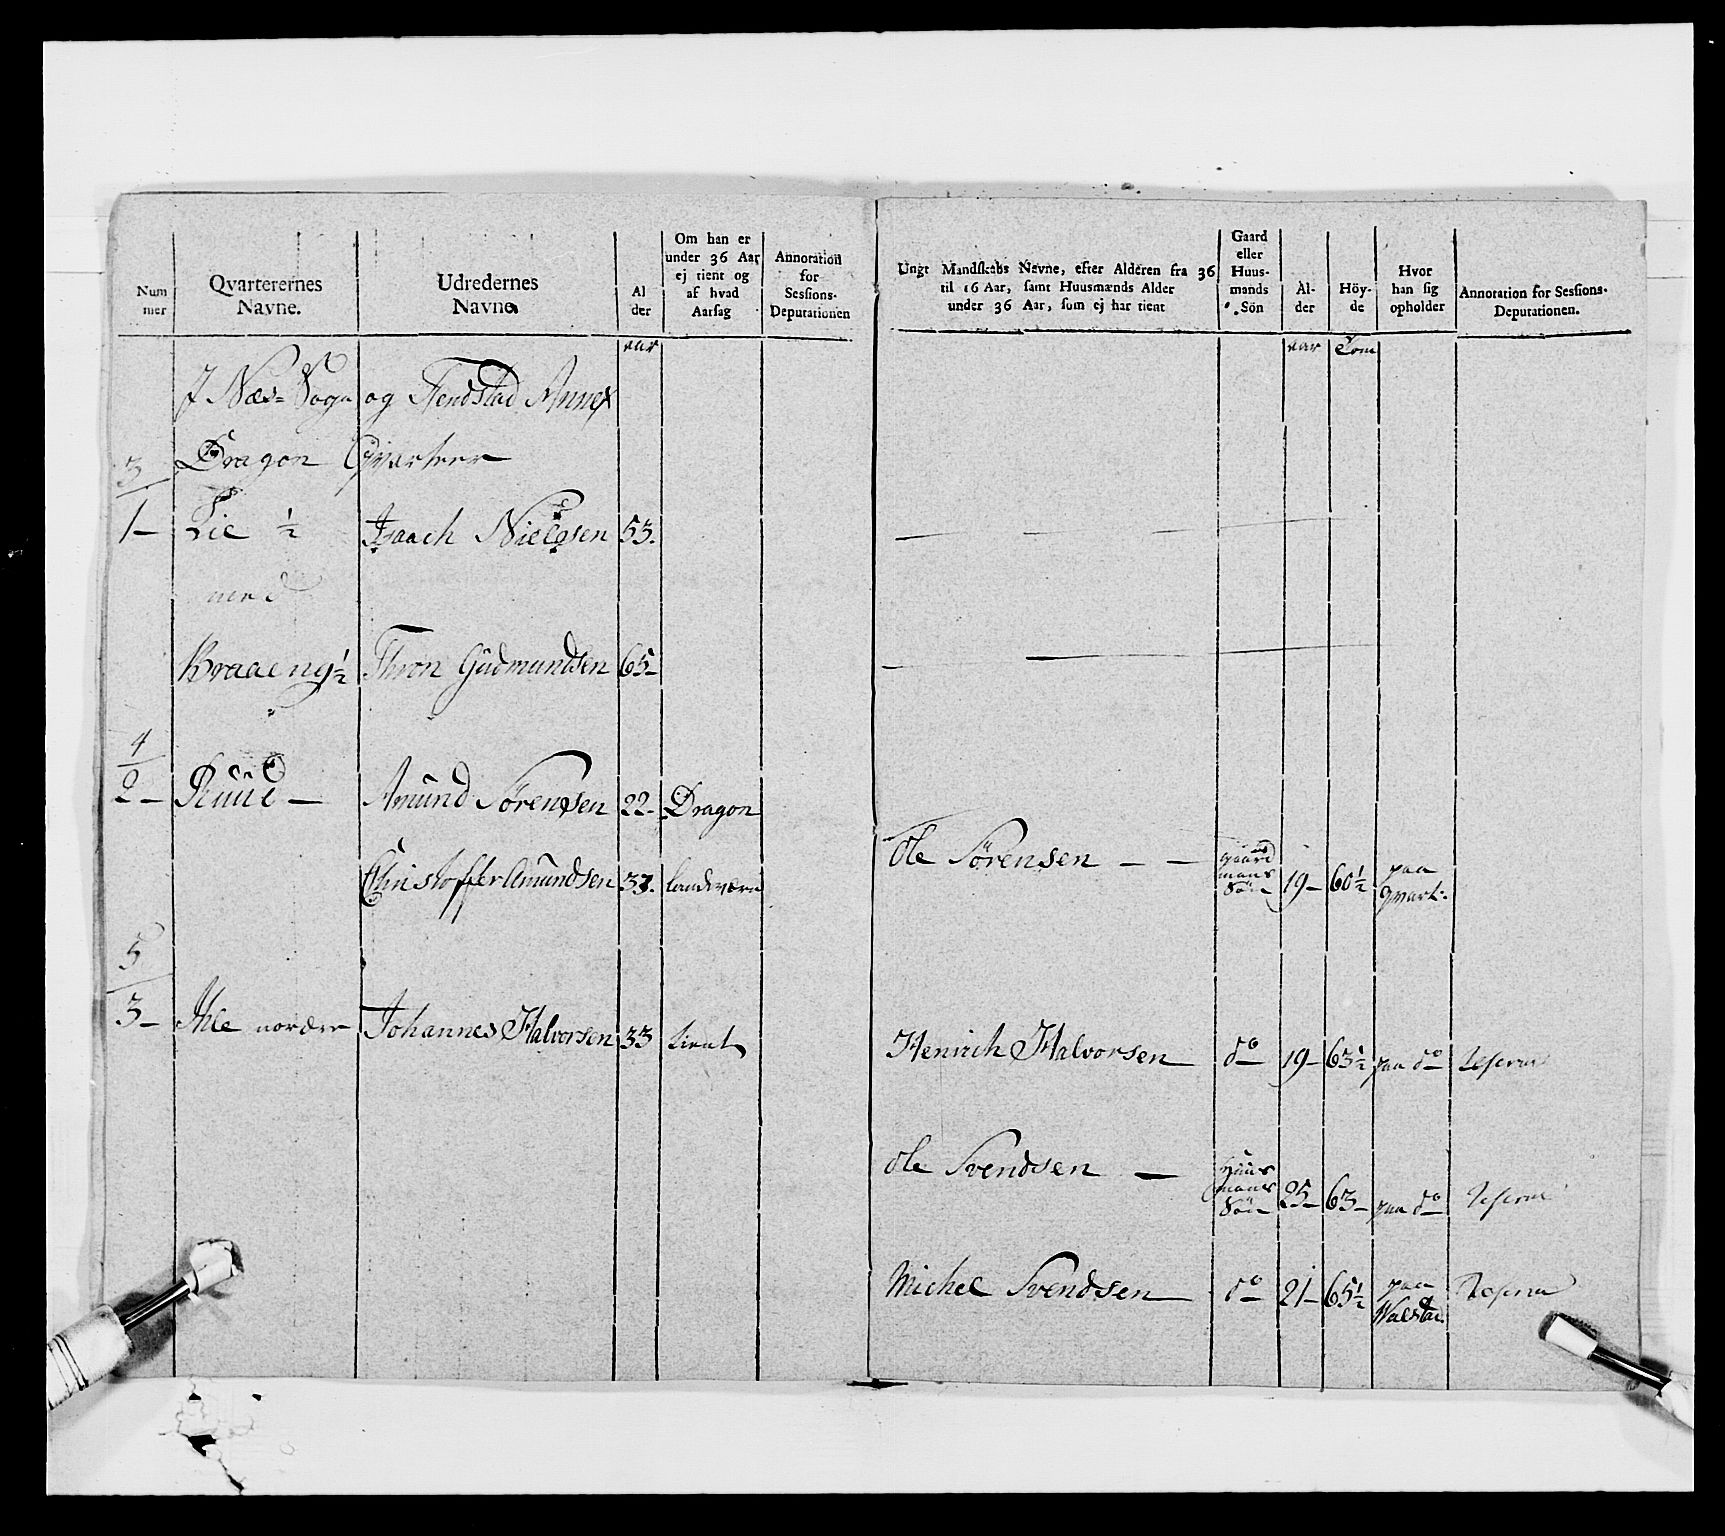 Num
mer
Qvarterernes
Navne.
Udredernes
Navne.
Al
der
Om han er
under 36 Aar
ej tient og
af hvad
Aarsag
Annotation
for
Sessions-
Deputationen
Ungt Mandskabs Navne, efter Alderen fra 36
til 16 Aar, samt Huusmænds Alder
under 36 Aar, som ej har tient
Gaard
eller
Huus-
mands
Sön
Al-
der
Höy-
de
Hvor
han sig
opholder
Annotation for Sessions-
Deputationen.
aar
aar Tom
I Næs- Sogn og Tendstad Annex
3 Dragon Qvarteer
1- Lie ½ Isaach Nielssen 53.
med
Braaeng ½ Thron Gudmundsen 65-
4
2- Ruud - Amund Sörensen 22- Dragon
Ole Sörensen - - gaard
mans
Sön 19- 60½ paa
qvart:
Christoffer Amundsen 37. Landværn
5
3- Ihle nordre Johannes Halvorsen 33 Lieut
Henrich Halvorsen - do 19- 63½ paa do Reserve
Ole Svendsen - Huus
mans
Sön 25- 63- paa do Reserve
Michel Svendsen - do 21- 65½ paa
Walstad Reserve